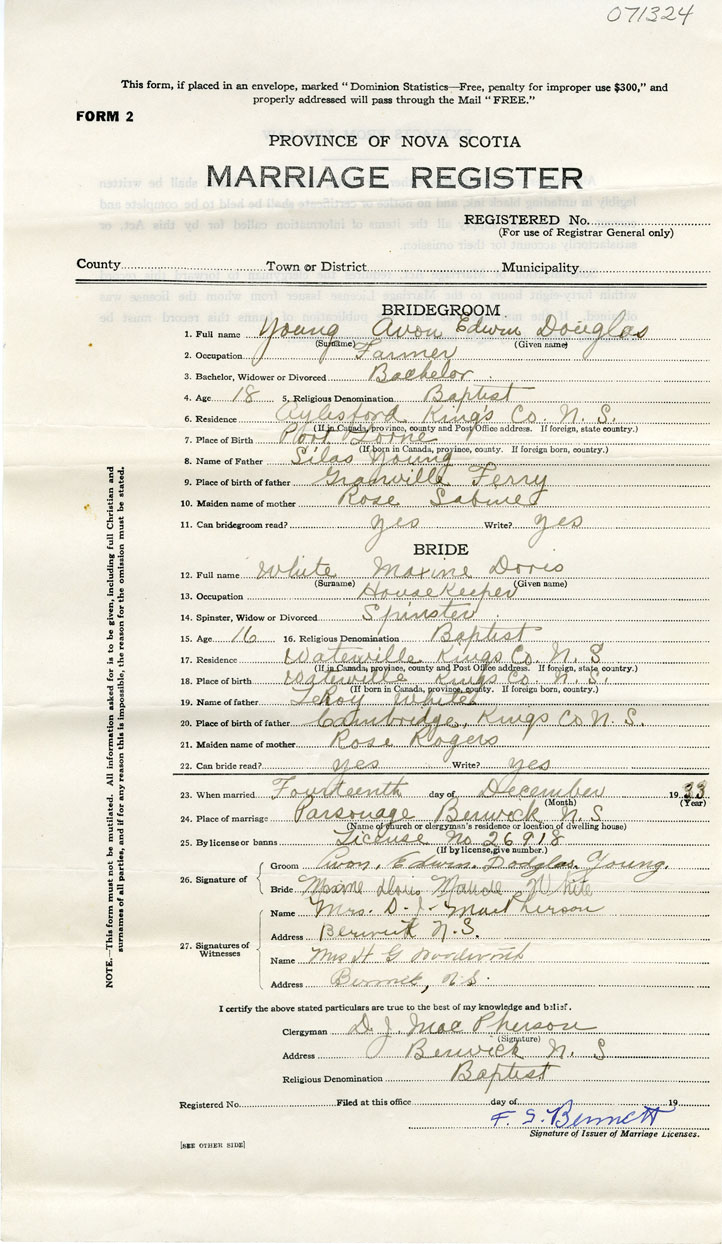 071324
This form, if placed in an envelope, marked "Dominion Statistics—Free, penalty for improper use $300," and
properly addressed will pass through the Mail "FREE."
FORM 2
PROVINCE OF NOVA SCOTIA
MARRIAGE REGISTER
REGISTERED No.
(For use of Registrar General only)
County Town or District Municipality
BRIDEGROOM
1. Full name Young Avon Edwin Douglas
(Surname) (Given name)
2. Occupation Farmer
3. Bachelor, Widower or Divorced Bachelor
4. Age 18 5. Religious Denomination Baptist
6. Residence Aylesford King's Co. N. S.
(If in Canada, province, county and Post Office address. If foreign, state country.)
7. Place of Birth Port Lorne
(If born in Canada, province, county. If foreign born, country.)
8. Name of Father Silas Young
9. Place of birth of father Granville Ferry
10. Maiden name of mother Rose Sabine
11. Can bridegroom read? yes Write? yes
BRIDE
12. Full name White Maxine Doris
(Surname) (Given name)
13. Occupation House Keeper
14. Spinster, Widow or Divorced Spinster
15. Age 16 16. Religious Denomination Baptist
17. Residence Waterville Kings Co. N. S
(If in Canada, province, county and Post Office address. If foreign, state country.)
18. Place of birth Waterville Kings Co. N. S.
(If born in Canada, province, county. If foreign born, country.)
19. Name of father LeRoy White
20. Place of birth of father Cambridge, Kings Co N. S.
21. Maiden name of mother Rose Rogers
22. Can bride read? yes Write? yes
23. When married Fourteenth day of December 1933
(Month) (Year)
24. Place of marriage Parsonage Berwick N. S
(Name of church or clergyman's residence or location of dwelling house)
25. By license or banns License No 26918
(If by license, give number.)
26. Signature of
Groom Avon. Edwin. Dodglas. Young.
Bride Maxine Doris White
27. Signatures of Witnesses
Name Mrs. D. J. MacPherson
Address Berwick N. S.
Name Mrs H G Woodworth
Address Berwick, N. S.
I certify the above stated particulars are true to the best of my knowledge and belief.
Clergyman D. J. MacPherson
(Signature)
Address Berwick N. S
Religious Denomination Baptist
Registered No. Filed at this office day of 19
F. S. Bennett
Signature of Issuer of Marriage Licenses.
[SEE OTHER SIDE]
NOTE.—This form must not be mutilated. All information asked for is to be given, including full Christian and
surnames of all parties, and if for any reason this is impossible, the reason for the omission must be stated.